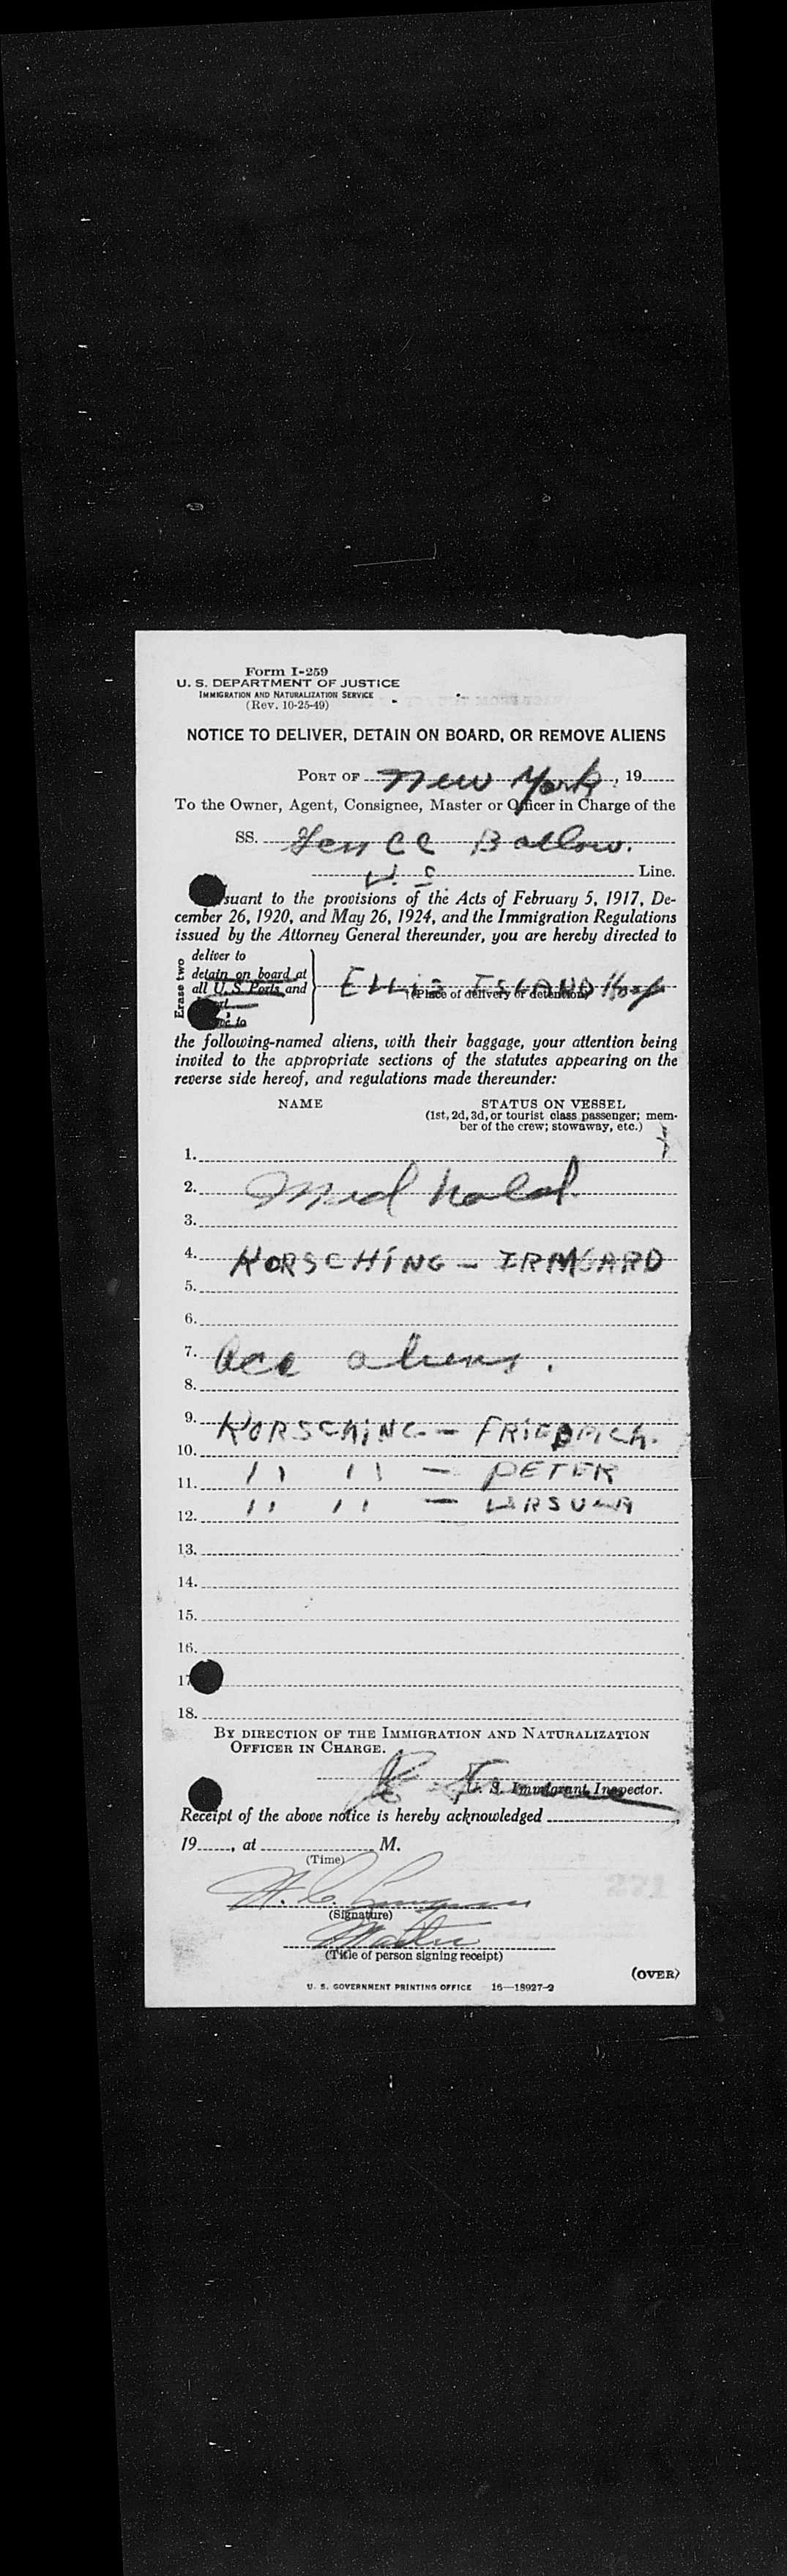 Form I-259
U. S. DEPARTMENT OF JUSTICE
IMMIGRATION AND NATURALIZATION SERVICE
(Rev. 10-25-49)
NOTICE TO DELIVER, DETAIN ON BOARD, OR REMOVE ALIENS
PORT OF New York, 19
To the Owner, Agent, Consignee, Master or Officer in Charge of the
SS. Gen CC Ballow.
U. S Line.
suant to the provisions of the Acts of February 5, 1917, De-
cember 26, 1920, and May 26, 1924, and the Immigration Regulations
issued by the Attorney General thereunder, you are hereby directed to
Erase two
deliver to
detain on board at
all U. S. Ports and
ELLIS ISLAND Hosp
(Place of delivery or detention)
the following-named aliens, with their baggage, your attention being
invited to the appropriate sections of the statutes appearing on the
reverse side hereof, and regulations made thereunder:
NAME STATUS ON VESSEL
(1st, 2d, 3d, or tourist class passenger; mem-
ber of the crew; stowaway, etc.)
1.
2. Med hold.
3.
4. KORSCHING - IRMGARD
5.
6.
7. Acc aliens.
8.
9. KORSCHING - FRIEDRICH.
10.
11. " " - PETER
12. " " - URSULA
13.
14.
15.
16.
17
18.
BY DIRECTION OF THE IMMIGRATION AND NATURALIZATION
OFFICER IN CHARGE.
U. S. Immigrant Inspector.
Receipt of the above notice is hereby acknowledged
19, at M.
(Time)
(Signature)
Master
(Title of person signing receipt)
(OVER)
U. S. GOVERNMENT PRINTING OFFICE 16—18927-2